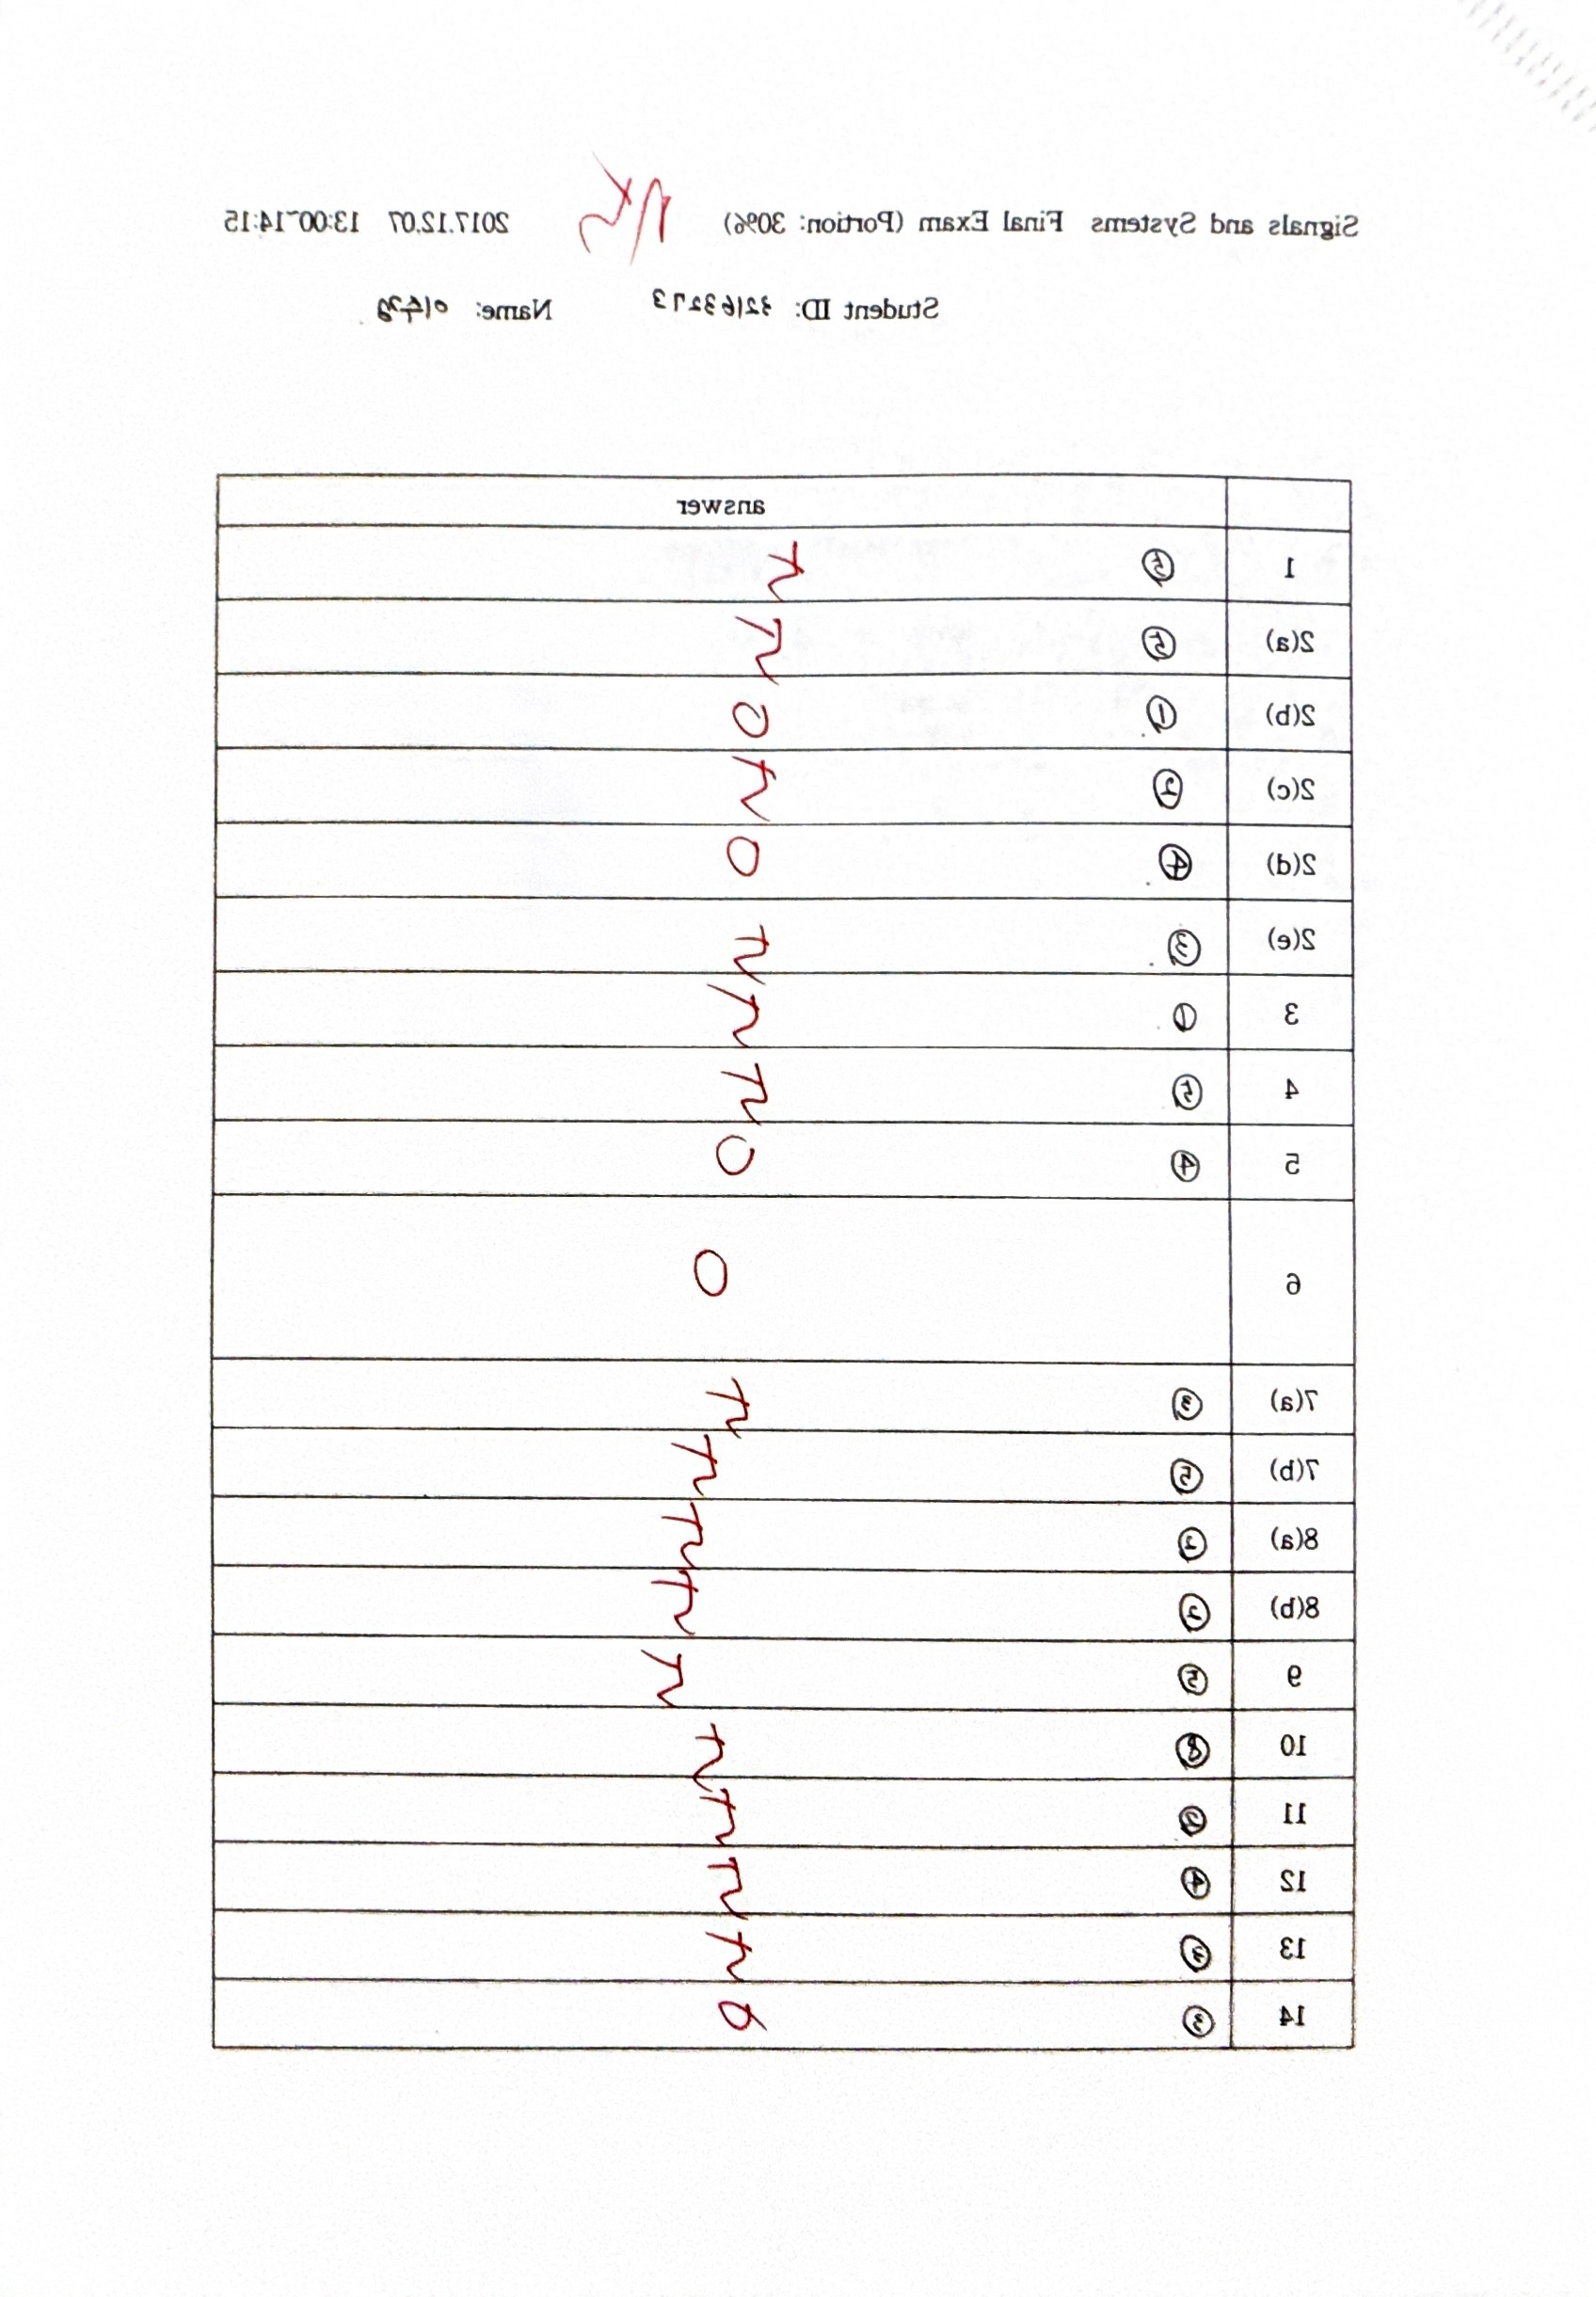 Signals and Systems Final Exam (Portion: 30%) 2017.12.07 13:00~14:15
Student ID: 32163273 Name: 이수경
answer
1 ⑤
2(a) ⑤
2(b) ①
2(c) ②
2(d) ④
2(e) ③
3 ①
4 ⑤
5 ④
6
7(a) ③
7(b) ⑤
8(a) ②
8(b) ②
9 ⑤
10 ⑧
11 ②
12 ④
13 ③
14 ③